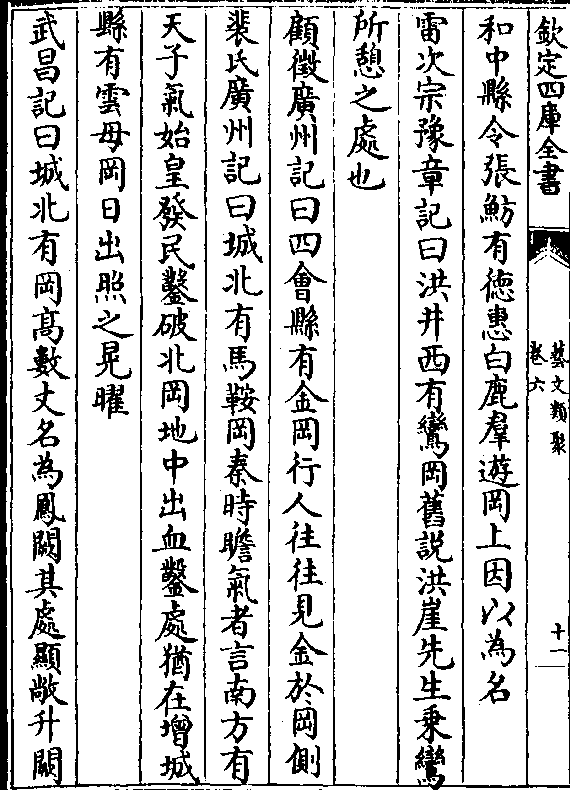 欽定四庫全書
藝文類聚
卷六
十一
和中縣令張魴有德惠白鹿羣遊岡上因以為名
雷次宗豫章記曰洪井西有鸞岡舊説洪崖先生乗鸞
所憩之處也
顧徴廣州記曰四會縣有金岡行人往往見金於岡側
裴氏廣州記曰城北有馬鞍岡秦時瞻氣者言南方有
天子氣始皇發民鑿破北岡地中出血鑿處猶在增城
縣有雲母岡日出照之晃曜
武昌記曰城北有岡髙數丈名為鳳闕其處顯敞升闕